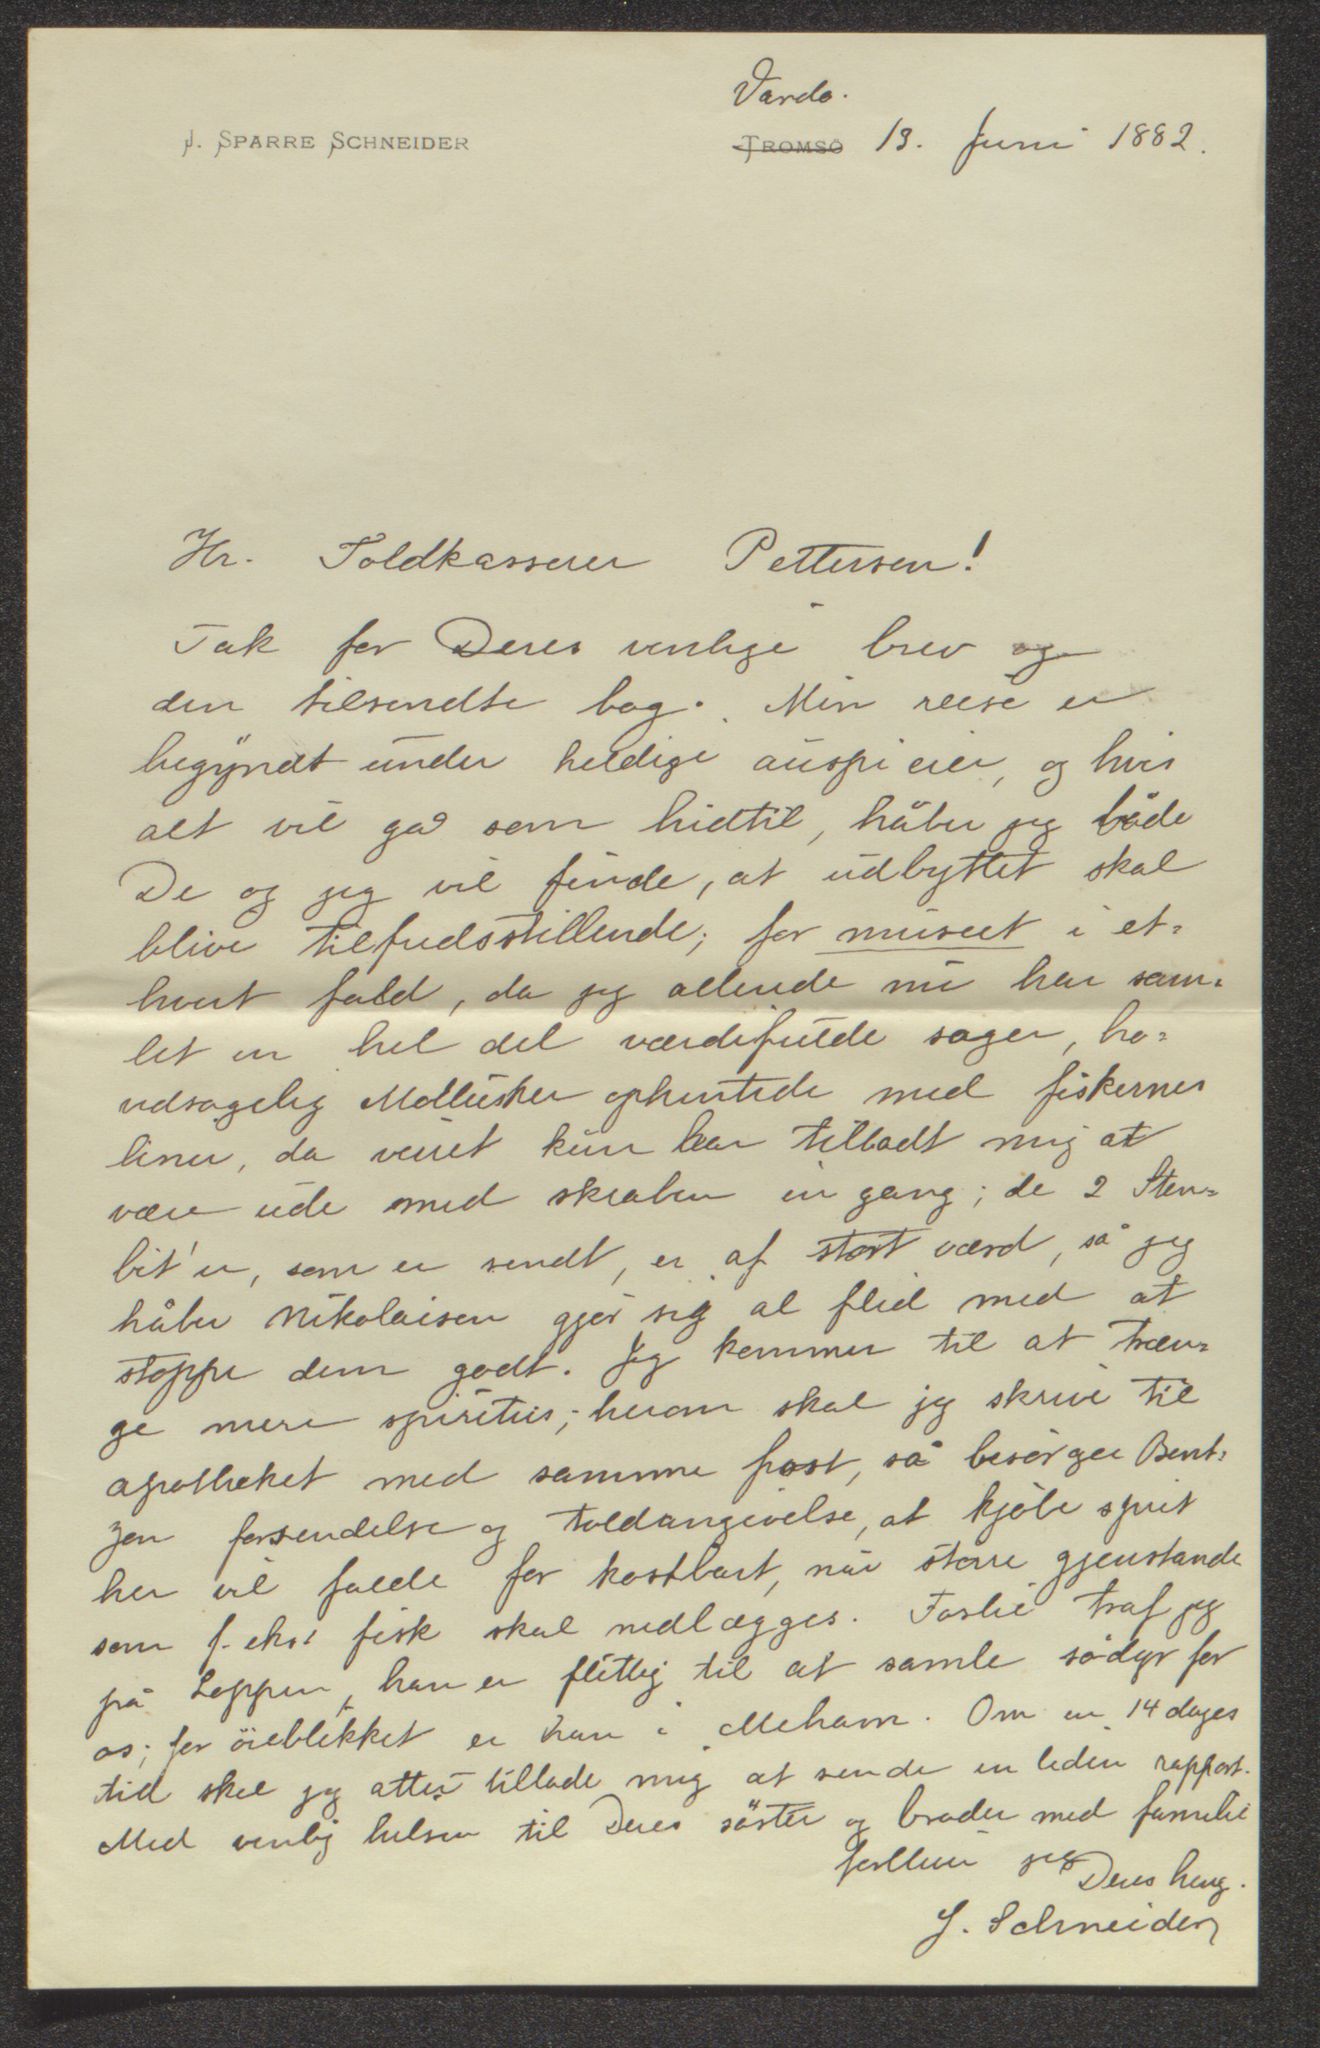 Vardo.
J. SPARRE SCHNEIDER TROMSÖ 13. Juni 1882.
Hr. Toldkasserer Pettersen!
Tak for Deres venlige brev og
den tilsendte bog. Min reise er
begyndt under heldige auspicier, og hvis
alt vil gå som hidtil, håber jeg både
De og jeg vil finde, at udbyttet skal
blive tilfredsstillende; for museet i et-
hvert fald, da jeg allerede nu har sam-
let en hel del værdifulde sager, ho-
vedsagelig Mollusker ophentede med fiskernes
liner, da veiret kun har tilladt mig at
være ude med skraben en gang; de 2 Sten-
bit'er, som er sendt, er af stort værd, så jeg
håber Nikolaisen gjør sig al flid med at
stoppe dem godt. Jeg kommer til at træn-
ge mere spiritus; herom skal jeg skrive til
apotheket med samme post, så besørger Bent-
zen forsendelse og toldangivelse, at kjöbe sprit
her vil falde for kostbart, når större gjenstande
som f. eks. fisk skal nedlægges. Foslie traf jeg
på Loppen, han er flittig til at samle södyr for
os; for öieblikket er han i Mehavn. Om en 14 dages
tid skal jeg atter tillade mig at sende en liden rapport.
Med venlig hilsen til Deres söster og broder med familie
forbliver jeg Deres heng.
J. Schneider